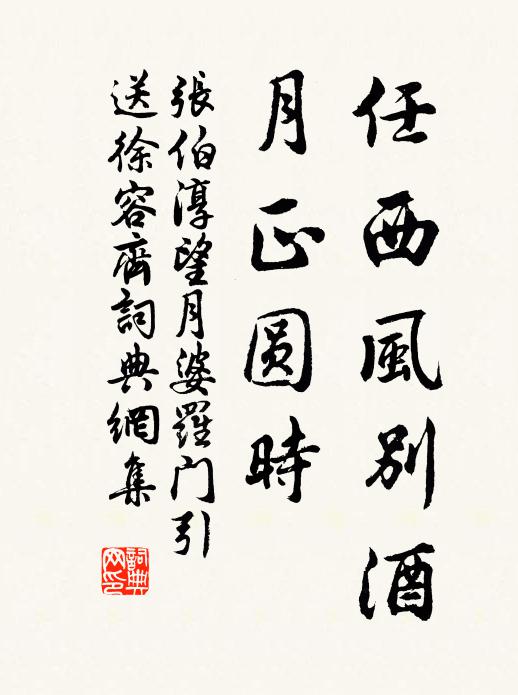 任西风别酒
月正圆時
張伯淳望月婆羅门引
送徐容齊詞典網集
詞典
网印